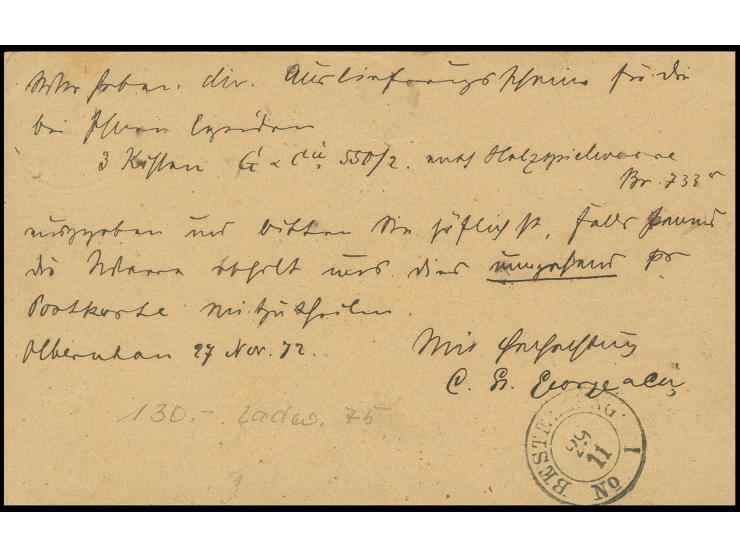 Wir haben div. Auslieferungsscheine für die
bei Ihnen
3 Kisten G & Cie 550/2. enth. Holzspielwaare
Br. 733
ausgegeben und bitten Sie höflichst, falls Jemand
die Waare abholt uns dies umgehend pr
Postkarte mitzutheilen.
Olbernhau 27 Nov. 72.
Mit Hochachtung
C. H. George & Cie
130.- 75
BESTE
29
11
I